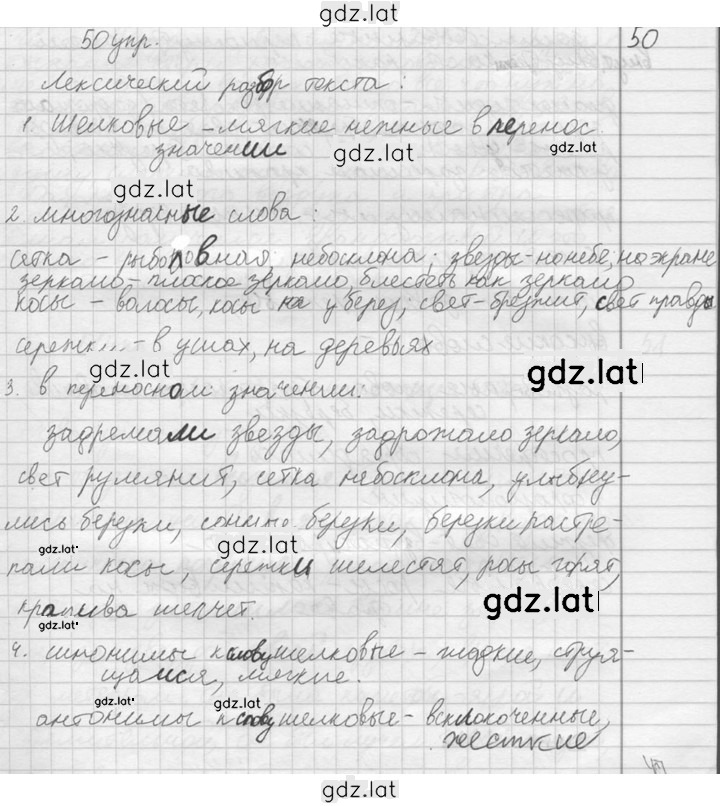 gdz.lat
50 упр.
50
Лексический разбор текста:
1. Шелковые – мягкие нежные в перенос.
значении
gdz.lat
gdz.lat
gdz.lat
2. многозначные слова:
сетка – рыболовная; небосклона; звезды – на небе, на экране
зеркало – плоское зеркало, блестеть как зеркало
косы – волосы, косы на у берез; свет – брезжит, свет правды
сережк... – в ушах, на деревьях
gdz.lat
gdz.lat
3. в переносном значении:
задремали звезды, задрожало зеркало,
свет румянит, сетка небосклона, улыбну-
лись березки, сонные березки, березки растре-
gdz.lat
gdz.lat
пали косы, сережки шелестят, росы горят,
gdz.lat
крапива шепчет.
gdz.lat
4. синонимы к слову шелковые – гладкие, струя-
щаися, мягкие.
gdz.lat
gdz.lat
антонимы к слову шелковые – всклокоченные,
жесткие
gdz.lat